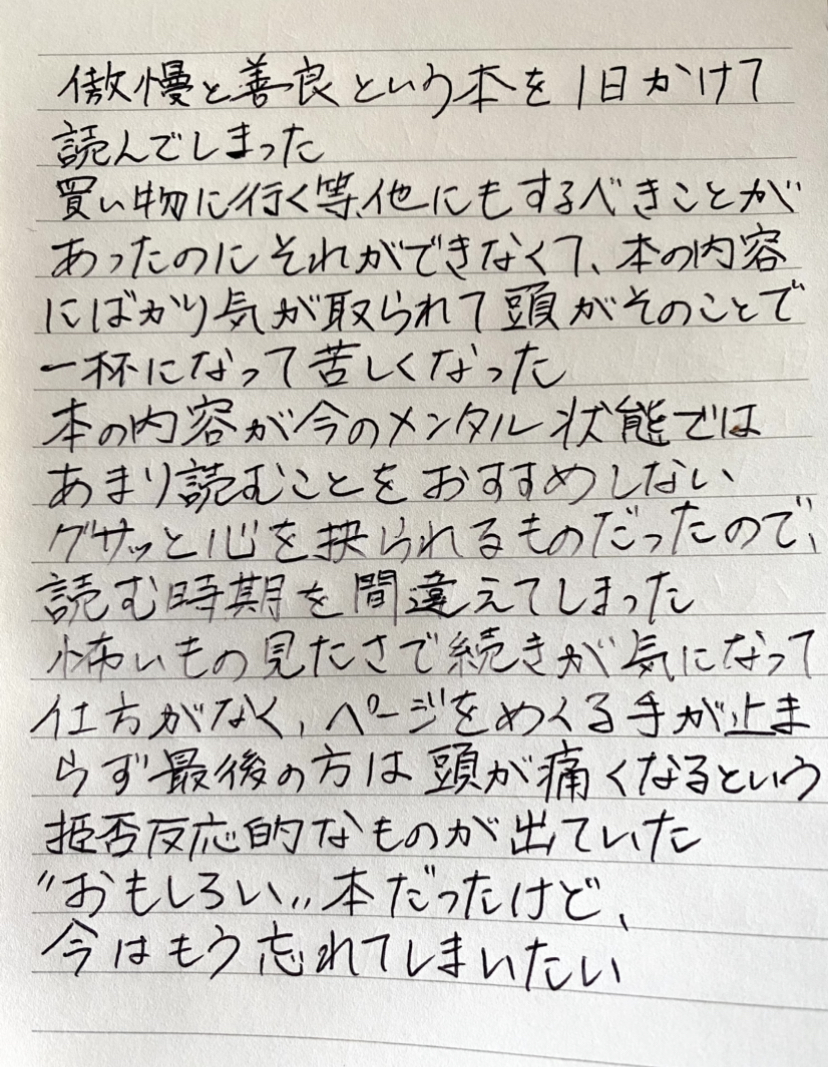 傲慢と善良という本を1日かけて
読んでしまった
買い物に行く等、他にもするべきことが
あったのにそれができなくて、本の内容
にばかり気が取られて頭がそのことで
一杯になって苦しくなった
本の内容が今のメンタル状態では
あまり読むことをおすすめしない
グサッと心を抉られるものだったので、
読む時期を間違えてしまった
怖いもの見たさで続きが気になって
仕方がなく、ページをめくる手が止ま
らず最後の方は頭が痛くなるという
拒否反応的なものが出ていた
"おもしろい"本だったけど、
今はもう忘れてしまいたい